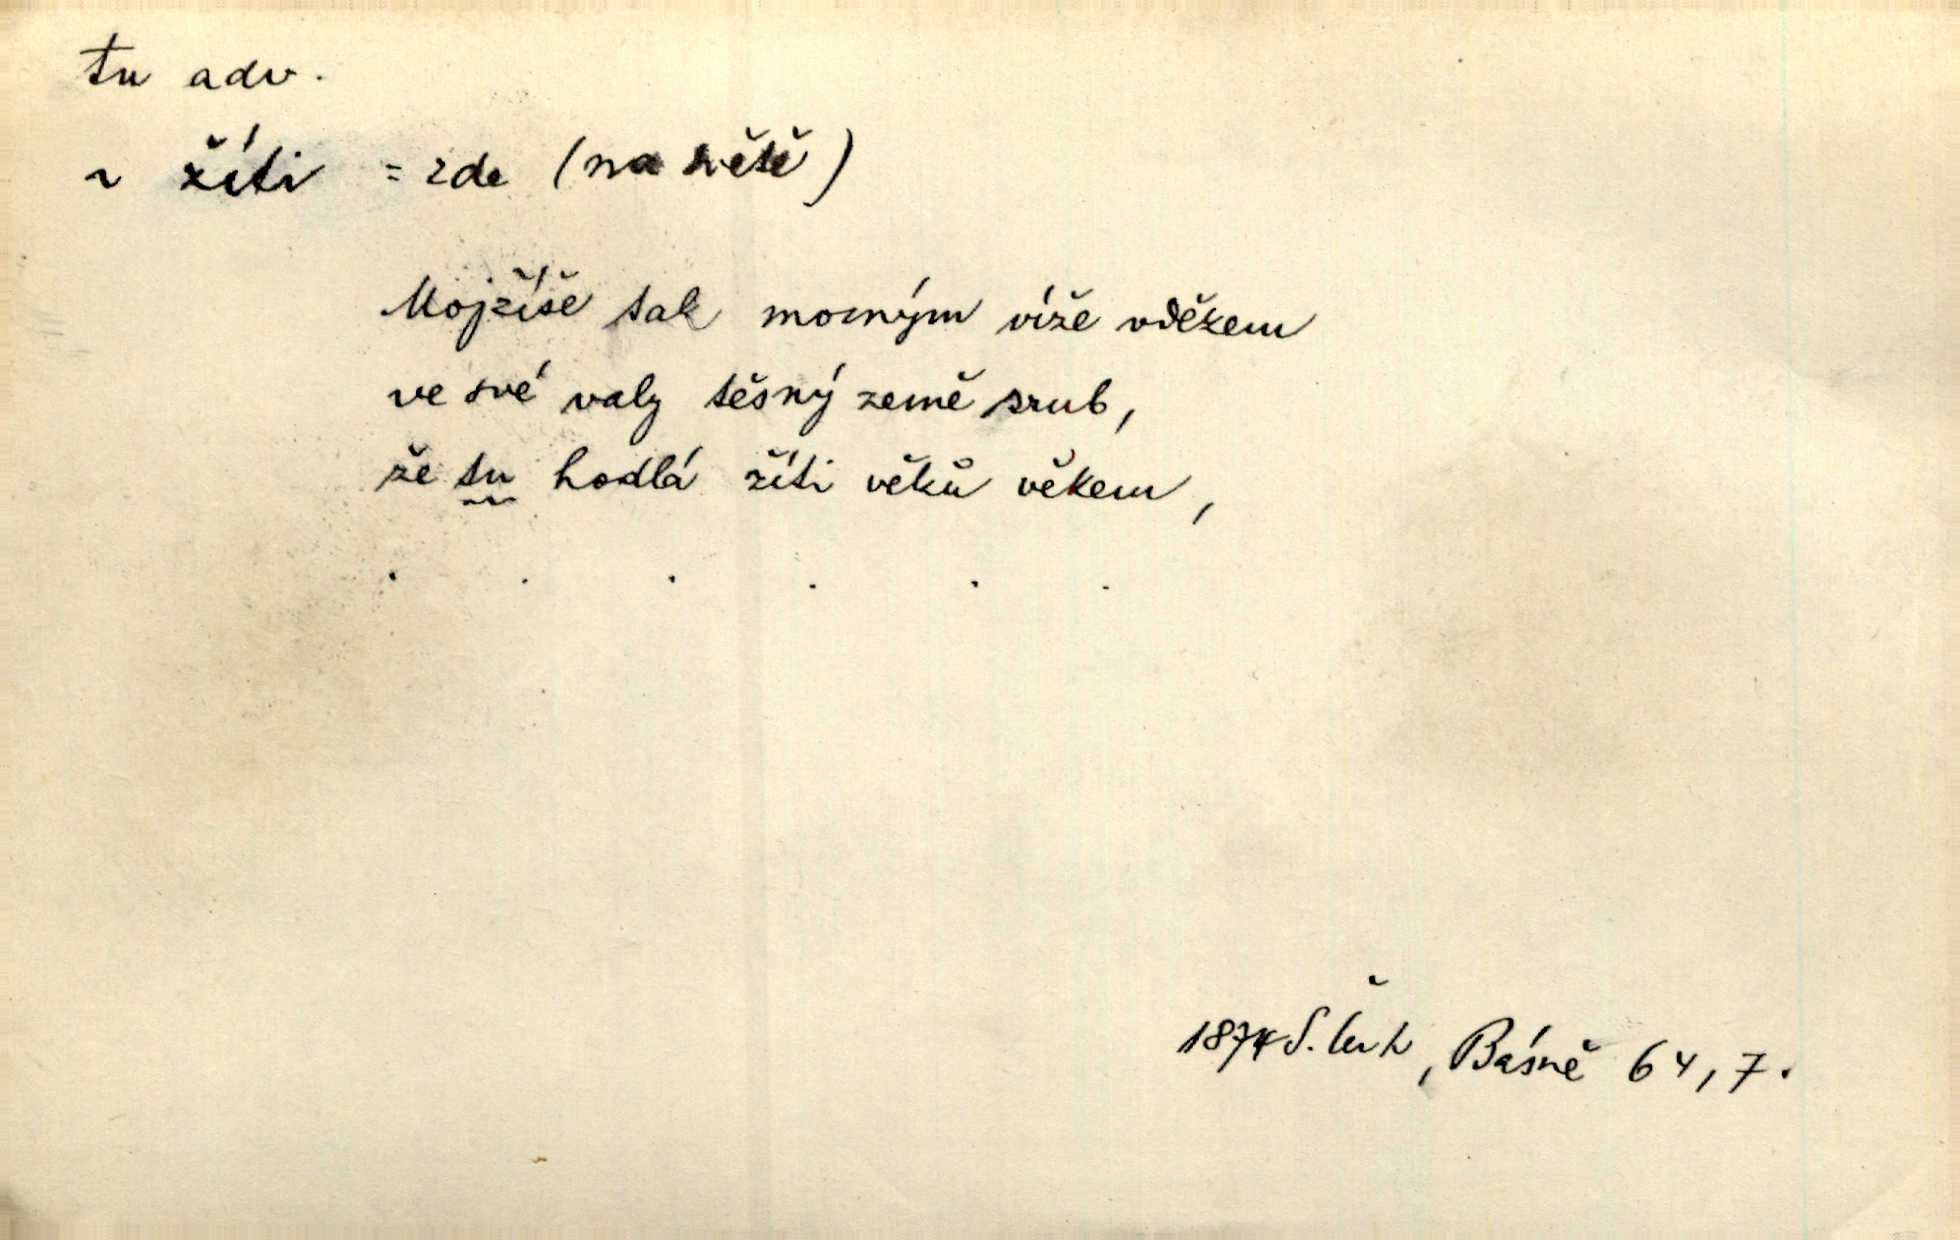 tu adv.
~ žíti = zde (na světě)
Mojžíše tak mocným víže vděkem
ve své valy těsný země srub,
že tu hodlá žíti věků věkem,
. . . . . .
1874 S. Čech, Básně 64, 7.